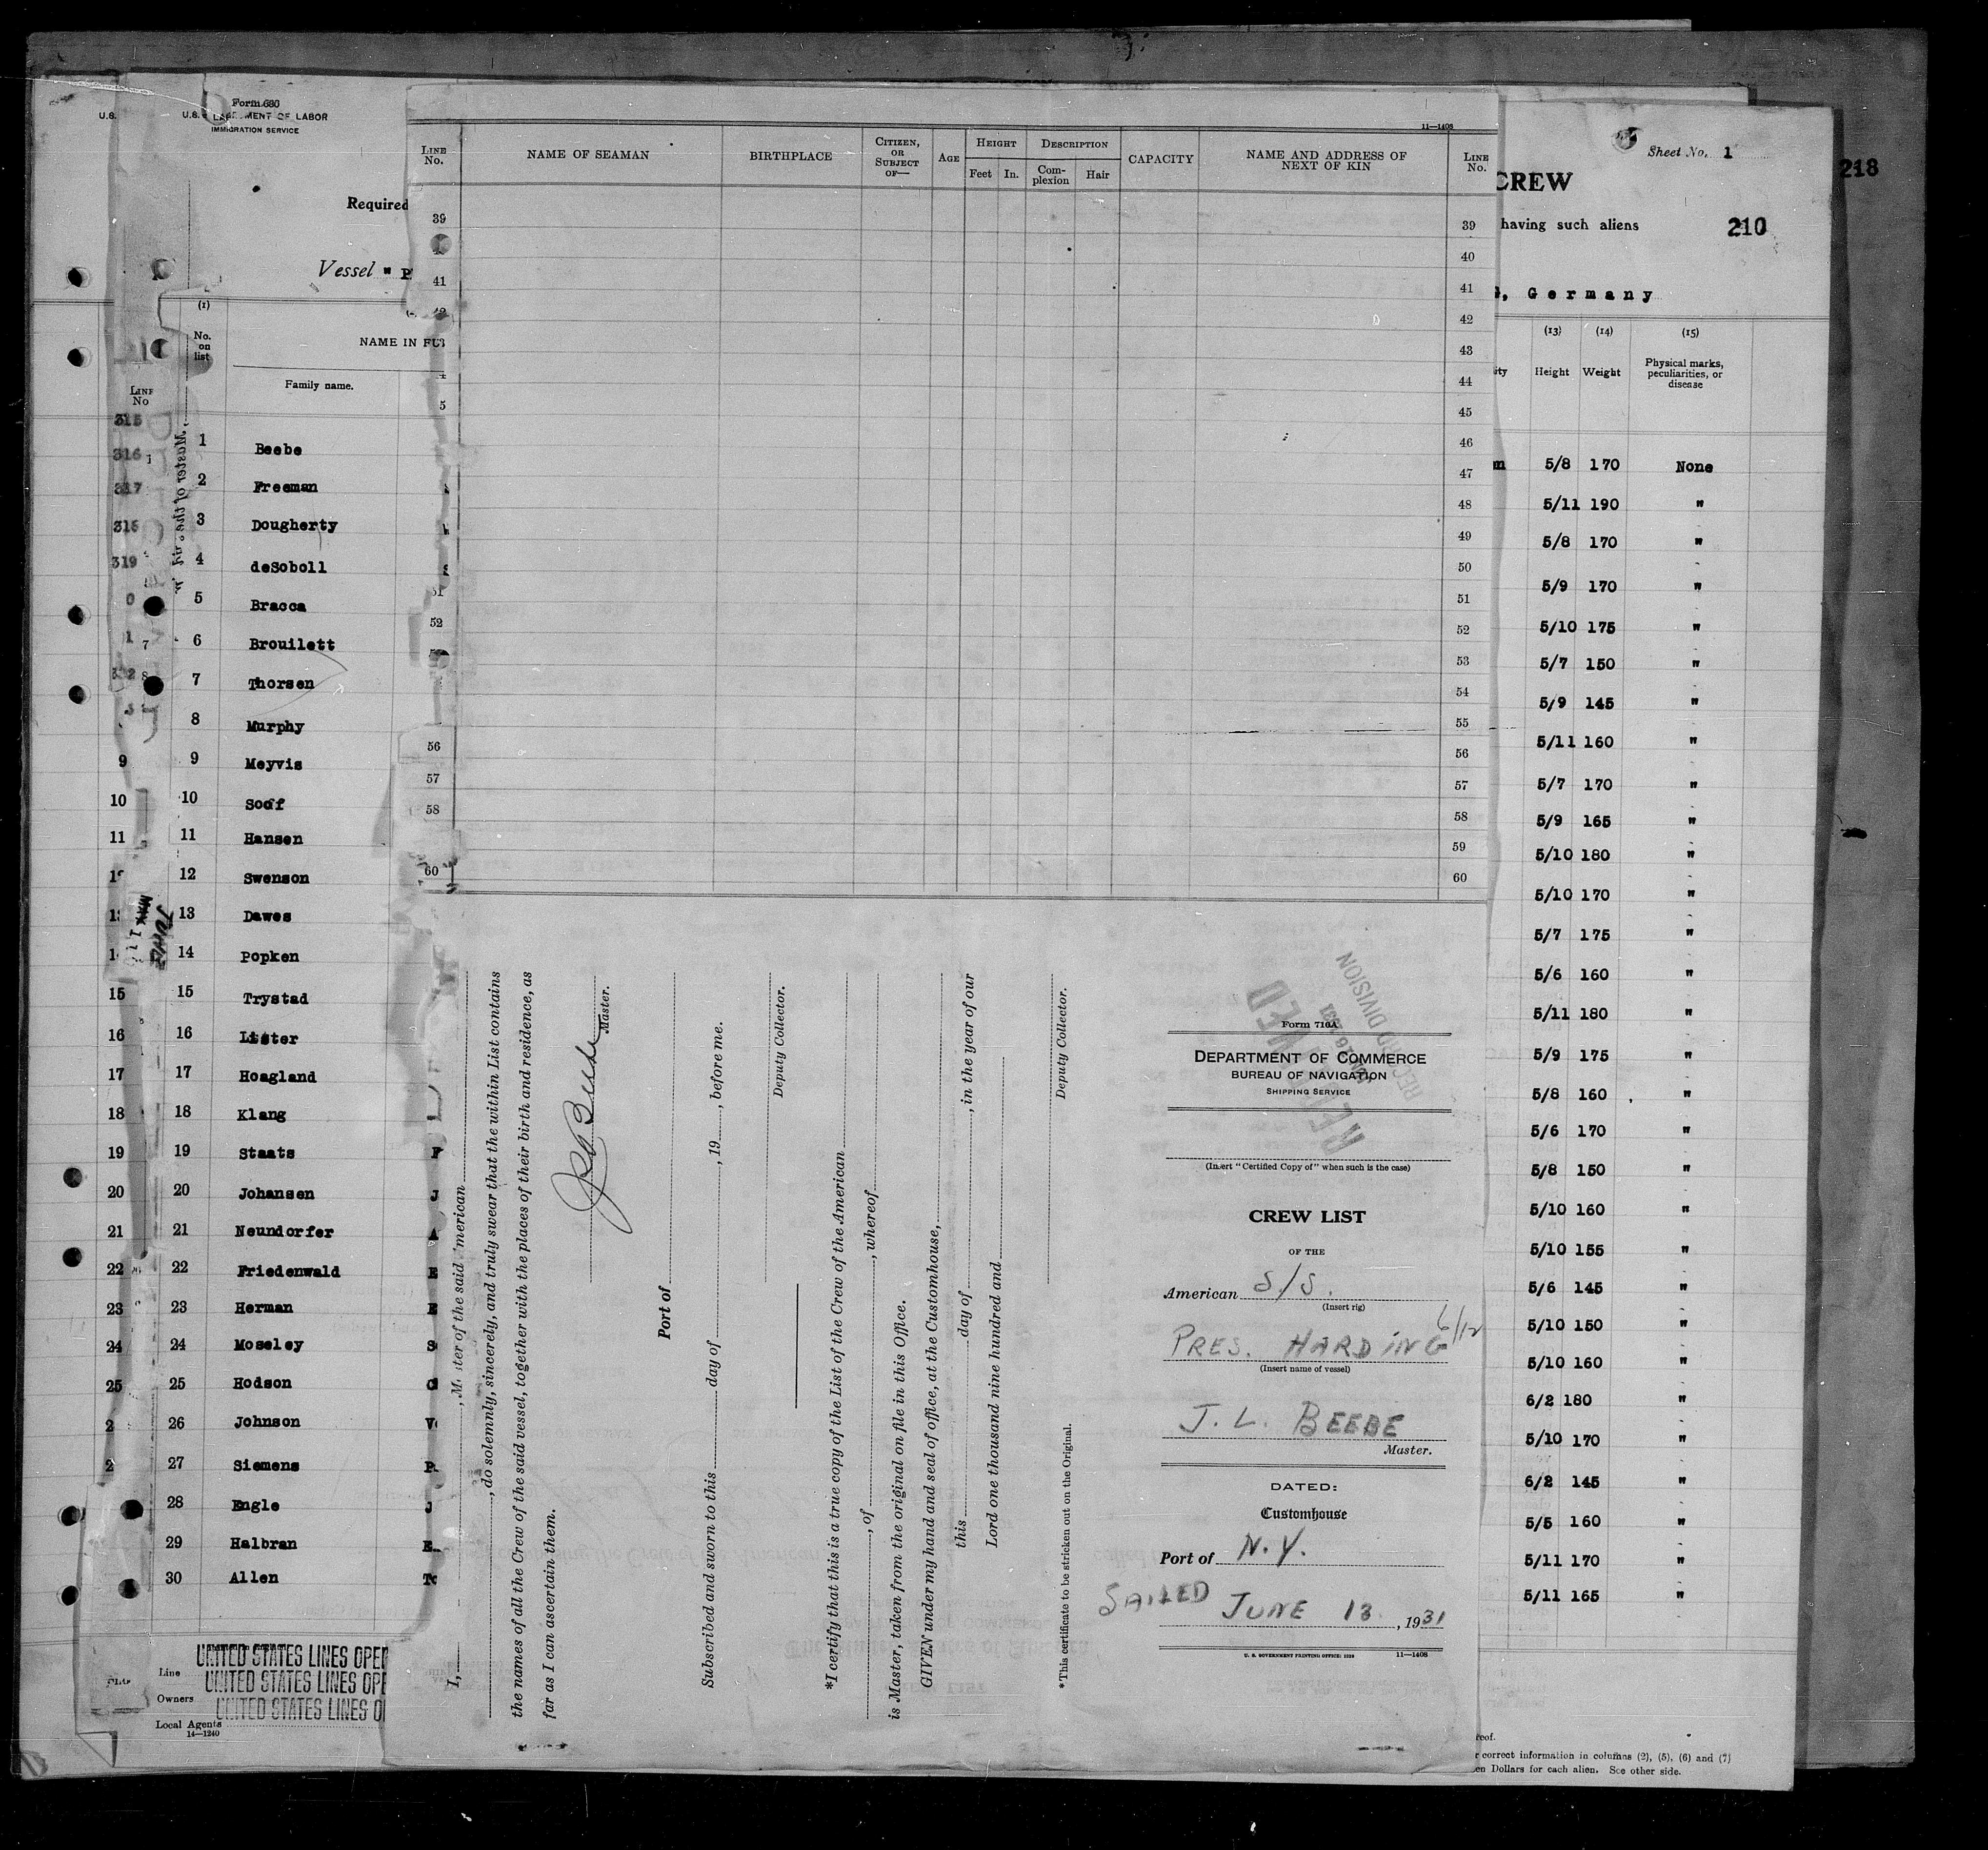 218
U.S.
Form 680
U.S. DEPARTMENT OF LABOR
IMMIGRATION SERVICE
Required
Vessel "P
(1)
No. on list
NAME IN FU
Family name.
LINE No
315
316
317
318
319
1 Beebe
2 Freeman
3 Dougherty
4 deSoboll
5 Bracca
6 Brouilett
7 Thorsen
8 Murphy
9 9 Meyvis
10 10 Sooff
11 11 Hansen
12 Swenson
13 Dawes
14 Popken
15 15 Trystad
16 16 Lister
17 17 Hoagland
18 18 Klang
19 19 Staats
20 20 Johansen J
21 21 Neundorfer A
22 22 Friedenwald E
23 23 Herman E
24 24 Moseley
25 25 Hodson
26 Johnson
27 Siemens
28 Engle J
29 Halbran
30 Allen
Line UNITED STATES LINES OPER
Owners UNITED STATES LINES OPE
UNITED STATES LINES O
Local Agents
14—1240
11—1408
LINE No.
NAME OF SEAMAN
BIRTHPLACE
CITIZEN, OR SUBJECT OF—
AGE
HEIGHT
Feet In.
DESCRIPTION
Complexion Hair
CAPACITY
NAME AND ADDRESS OF NEXT OF KIN
LINE No.
39 39
40
41 41
42
43
44
45
46
47
48
49
50
51 51
52 52
53
54
55
56 56
57 57
58 58
59
60 60
I, , Master of the said American
, do solemnly, sincerely, and truly swear that the within List contains
the names of all the Crew of the said vessel, together with the places of their birth and residence, as
far as I can ascertain them.
Master.
Port of
Subscribed and sworn to this day of , 19 , before me.
Deputy Collector.
*I certify that this is a true copy of the List of the Crew of the American
, of , whereof
is Master, taken from the original on file in this Office.
GIVEN under my hand and seal of office, at the Customhouse,
this day of , in the year of our
Lord one thousand nine hundred and
Deputy Collector.
*This certificate to be stricken out on the Original.
RECORD DIVISION
Form 710A
DEPARTMENT OF COMMERCE
BUREAU OF NAVIGATION
SHIPPING SERVICE
(Insert "Certified Copy of" when such is the case)
CREW LIST
OF THE
American S/S.
(Insert rig)
6/12
PRES. HARDING
(Insert name of vessel)
J. L. BEEBE
Master.
DATED:
Customhouse
Port of N.Y.
SAILED JUNE 13 , 1931
U. S. GOVERNMENT PRINTING OFFICE: 1928 11—1408
Sheet No. 1
CREW
having such aliens
210
G, Germany
(13) (14) (15)
Height Weight Physical marks, peculiarities, or disease
5/8 170 None
5/11 190 "
5/8 170 "
5/9 170 "
5/10 175 "
5/7 150 "
5/9 145 "
5/11 160 "
5/7 170 "
5/9 165 "
5/10 180 "
5/10 170 "
5/7 175 "
5/6 160 "
5/11 180 "
5/9 175 "
5/8 160 "
5/6 170 "
5/8 150 "
5/10 160 "
5/10 155 "
5/6 145 "
5/10 150 "
5/10 160 "
6/2 180 "
5/10 170 "
6/2 145 "
5/5 160 "
5/11 170 "
5/11 165 "
correct information in columns (2), (5), (6) and (7)
Dollars for each alien. See other side.